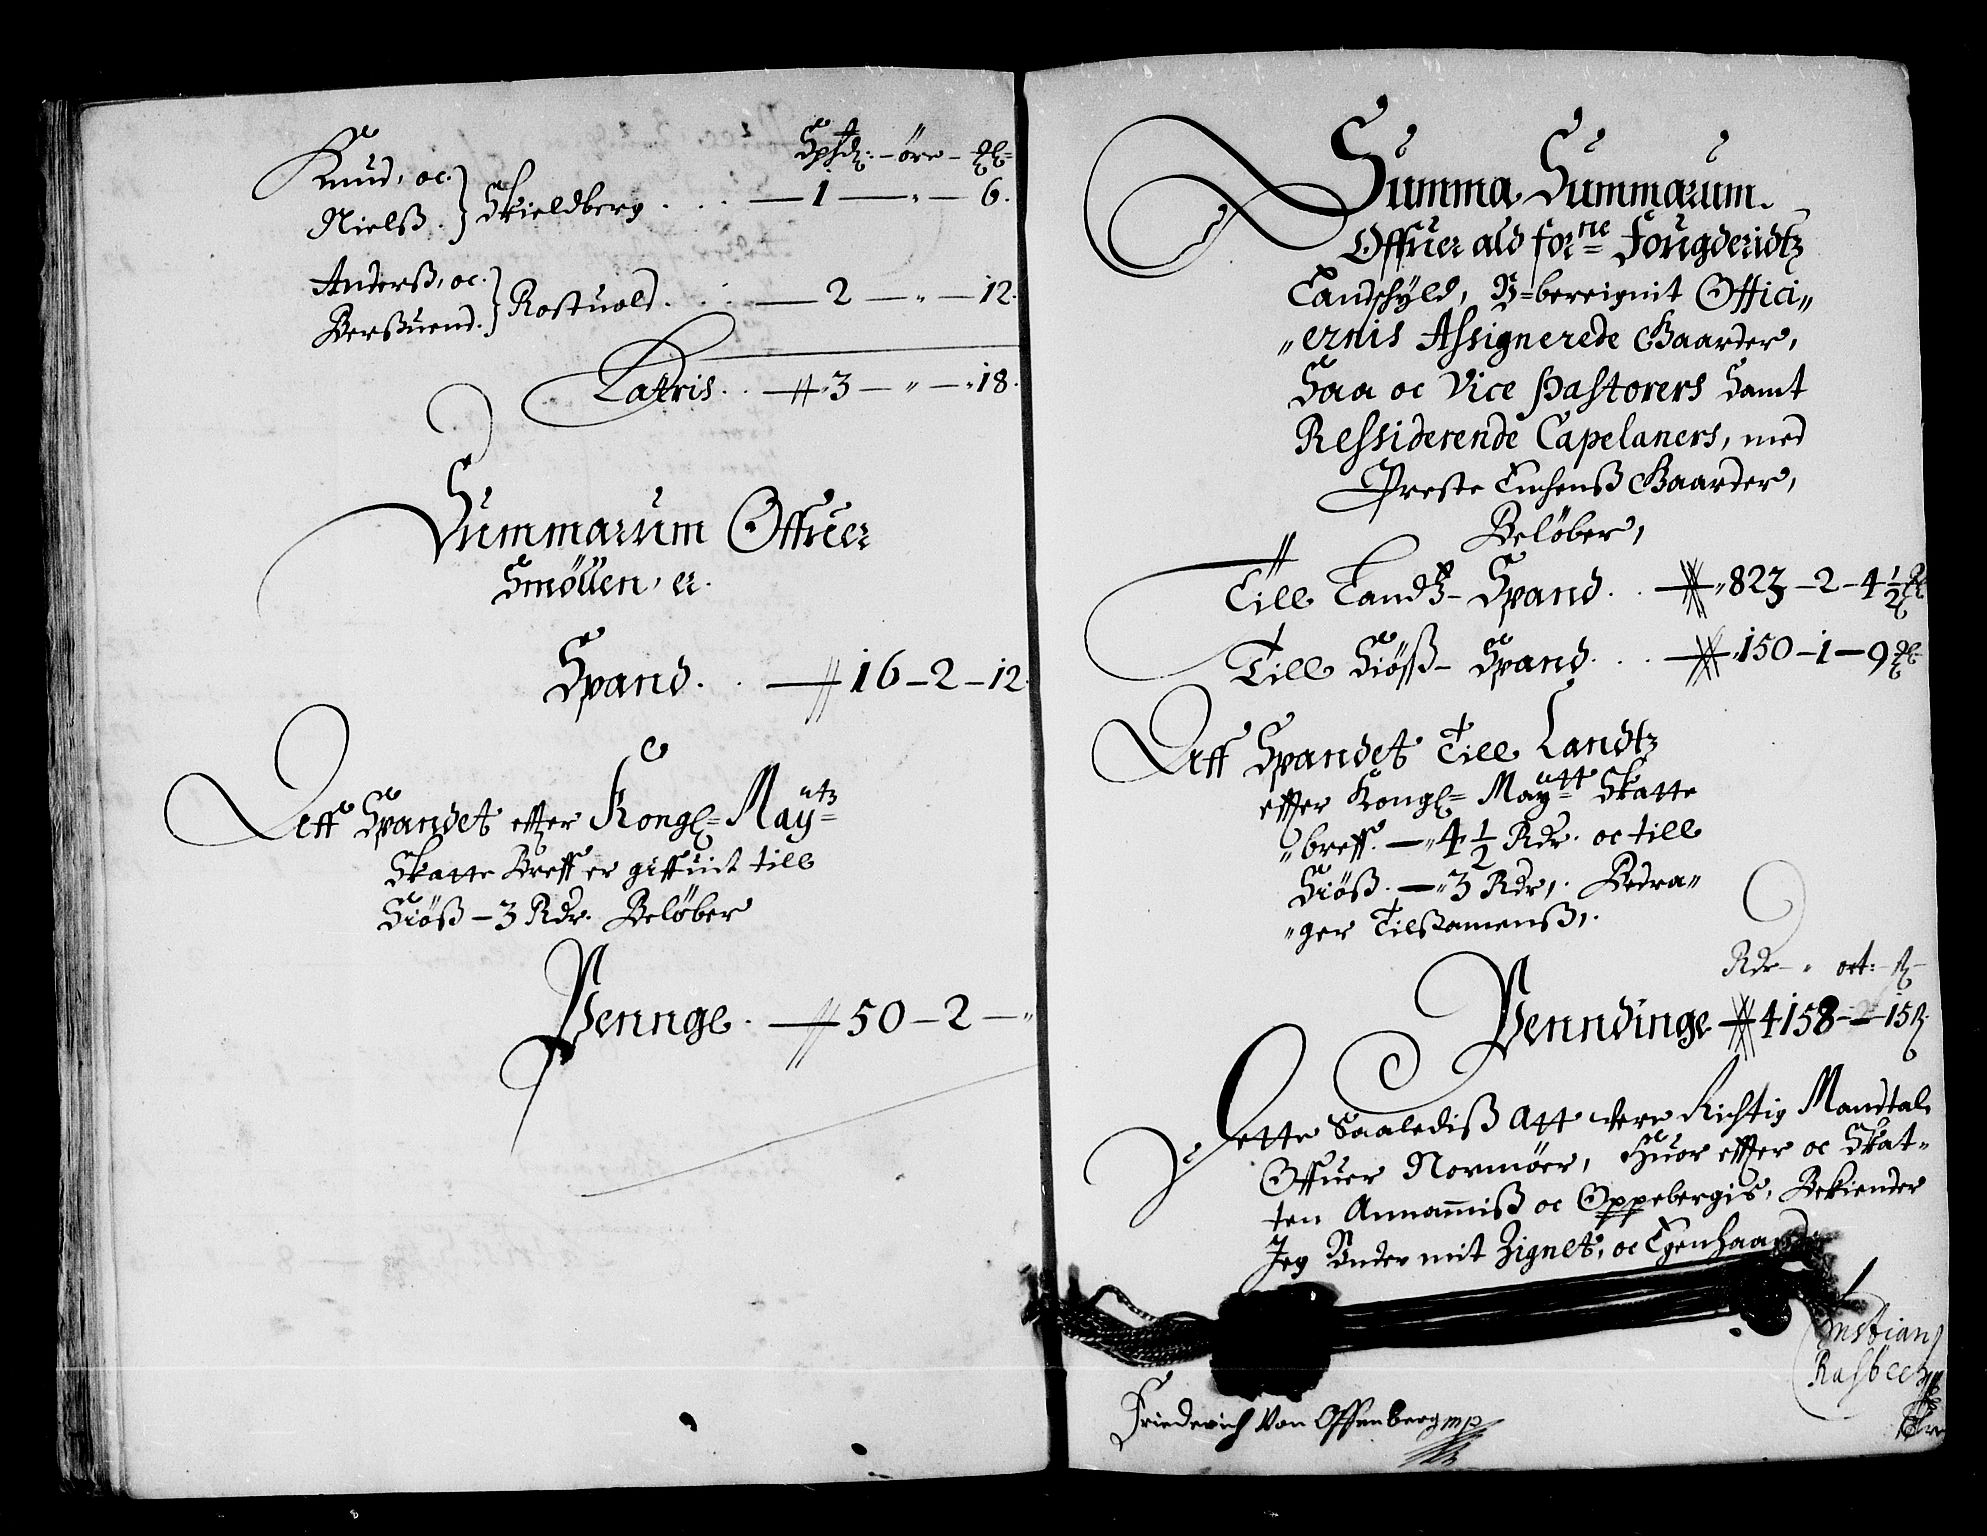 Spd: - öre - ml=
Knud, oc
Nielß } Skieldberg . . . — 1 — „ — 6.
Anderß, oc
Berßuend. } Rostuold. . . — 2 — „ — 12.
Lateris. . — 3 — „ — 18.
Summarum Offuer
Smöllen, er.
Spand. . — 16 - 2 - 12
Aff Spandet effter Kongl= Mayts=
Skatte Breff er giffuit till
Siöß - 3 Rdr. Belöber
Pennge. — 50 - 2 — „
Summa Summarum.
Offuer ald forne Fougderidtz
Landschyld, V=bereignit Offici„
„ernis Assignerede Gaarder,
Saa oc Vice Pastorers samt
Ressiderende Capelaners, med
Preste Enchenß Gaarder,
Belöber,
Till Landtz - Spand. . — „823 - 2 - 4 1/2 ml
Till Siöß - Spand. . . — „150 - 1 - 9 ml
Aff Spandet Till Landtz
effter Kongl= Maytt Skatte
„breff. — „4 1/2 Rdr. oc till
Siöß. — „3 Rdr,. Bedra„
„ger Tilßamenß,.
Rdr - „ ort: - ß -
Penndinge — 4158 - - 15 ß.
Dette Saalediß att vere Richtig Mandtal
Offuer Normöer, Huor effter oc Skat„
ten Annammiß oc Oppebergis, Bekiender
Jeg Under mit Zignet, oc Egenhaand
Friederich Von Offenberg mp